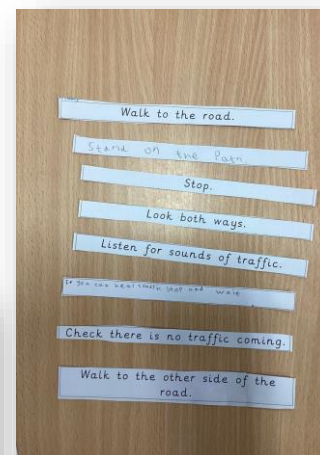 Walk to the road.
Stand on the Path.
Stop.
Look both ways.
Listen for sounds of traffic.
you can stop and wait
Check there is no traffic coming.
Walk to the other side of the
road.